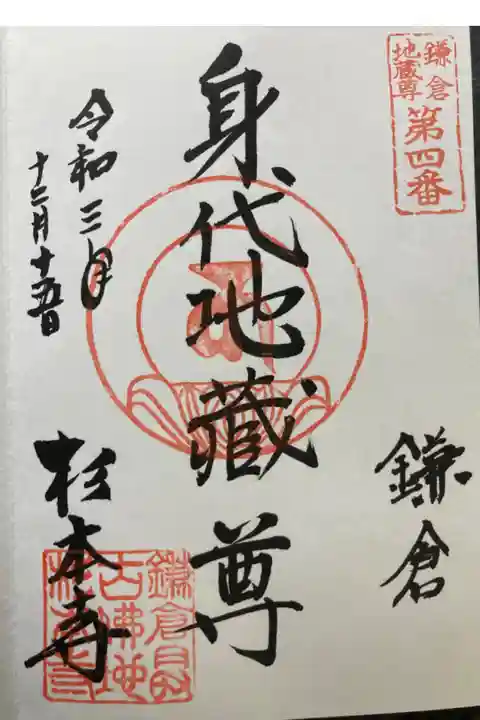 鎌倉
地蔵尊
第四番
鎌倉
身代地蔵尊
令和三年
十二月十五日
杉本寺
鎌倉最
古佛地